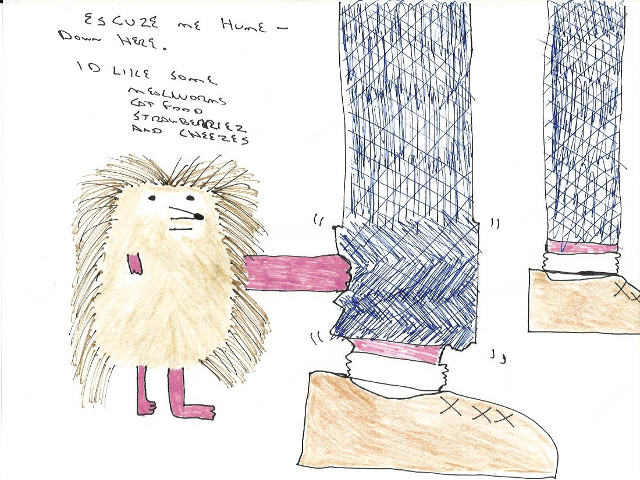 ESCUZE ME HUME -
DOWN HERE.
I'D LIKE SOME
MEALWORMS
CAT FOOD
STRAWBERRIEZ
AND CHEEZES